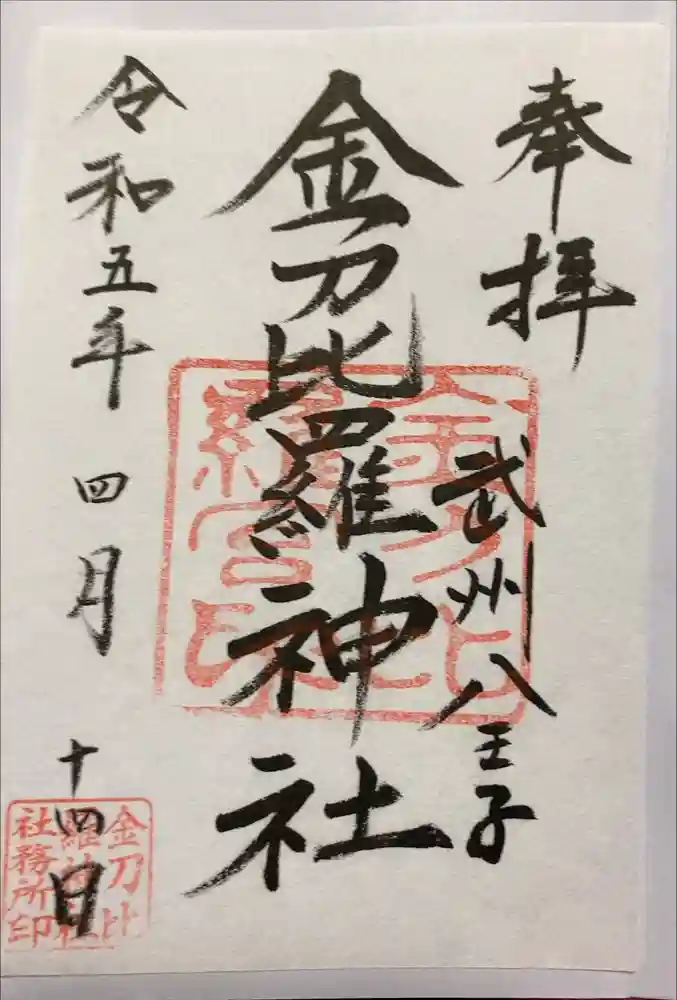 奉拝
武州八王子
金刀比羅神社
令和五年 四月 十四日
金刀比
羅宮印
金刀比
羅神社
社務所印